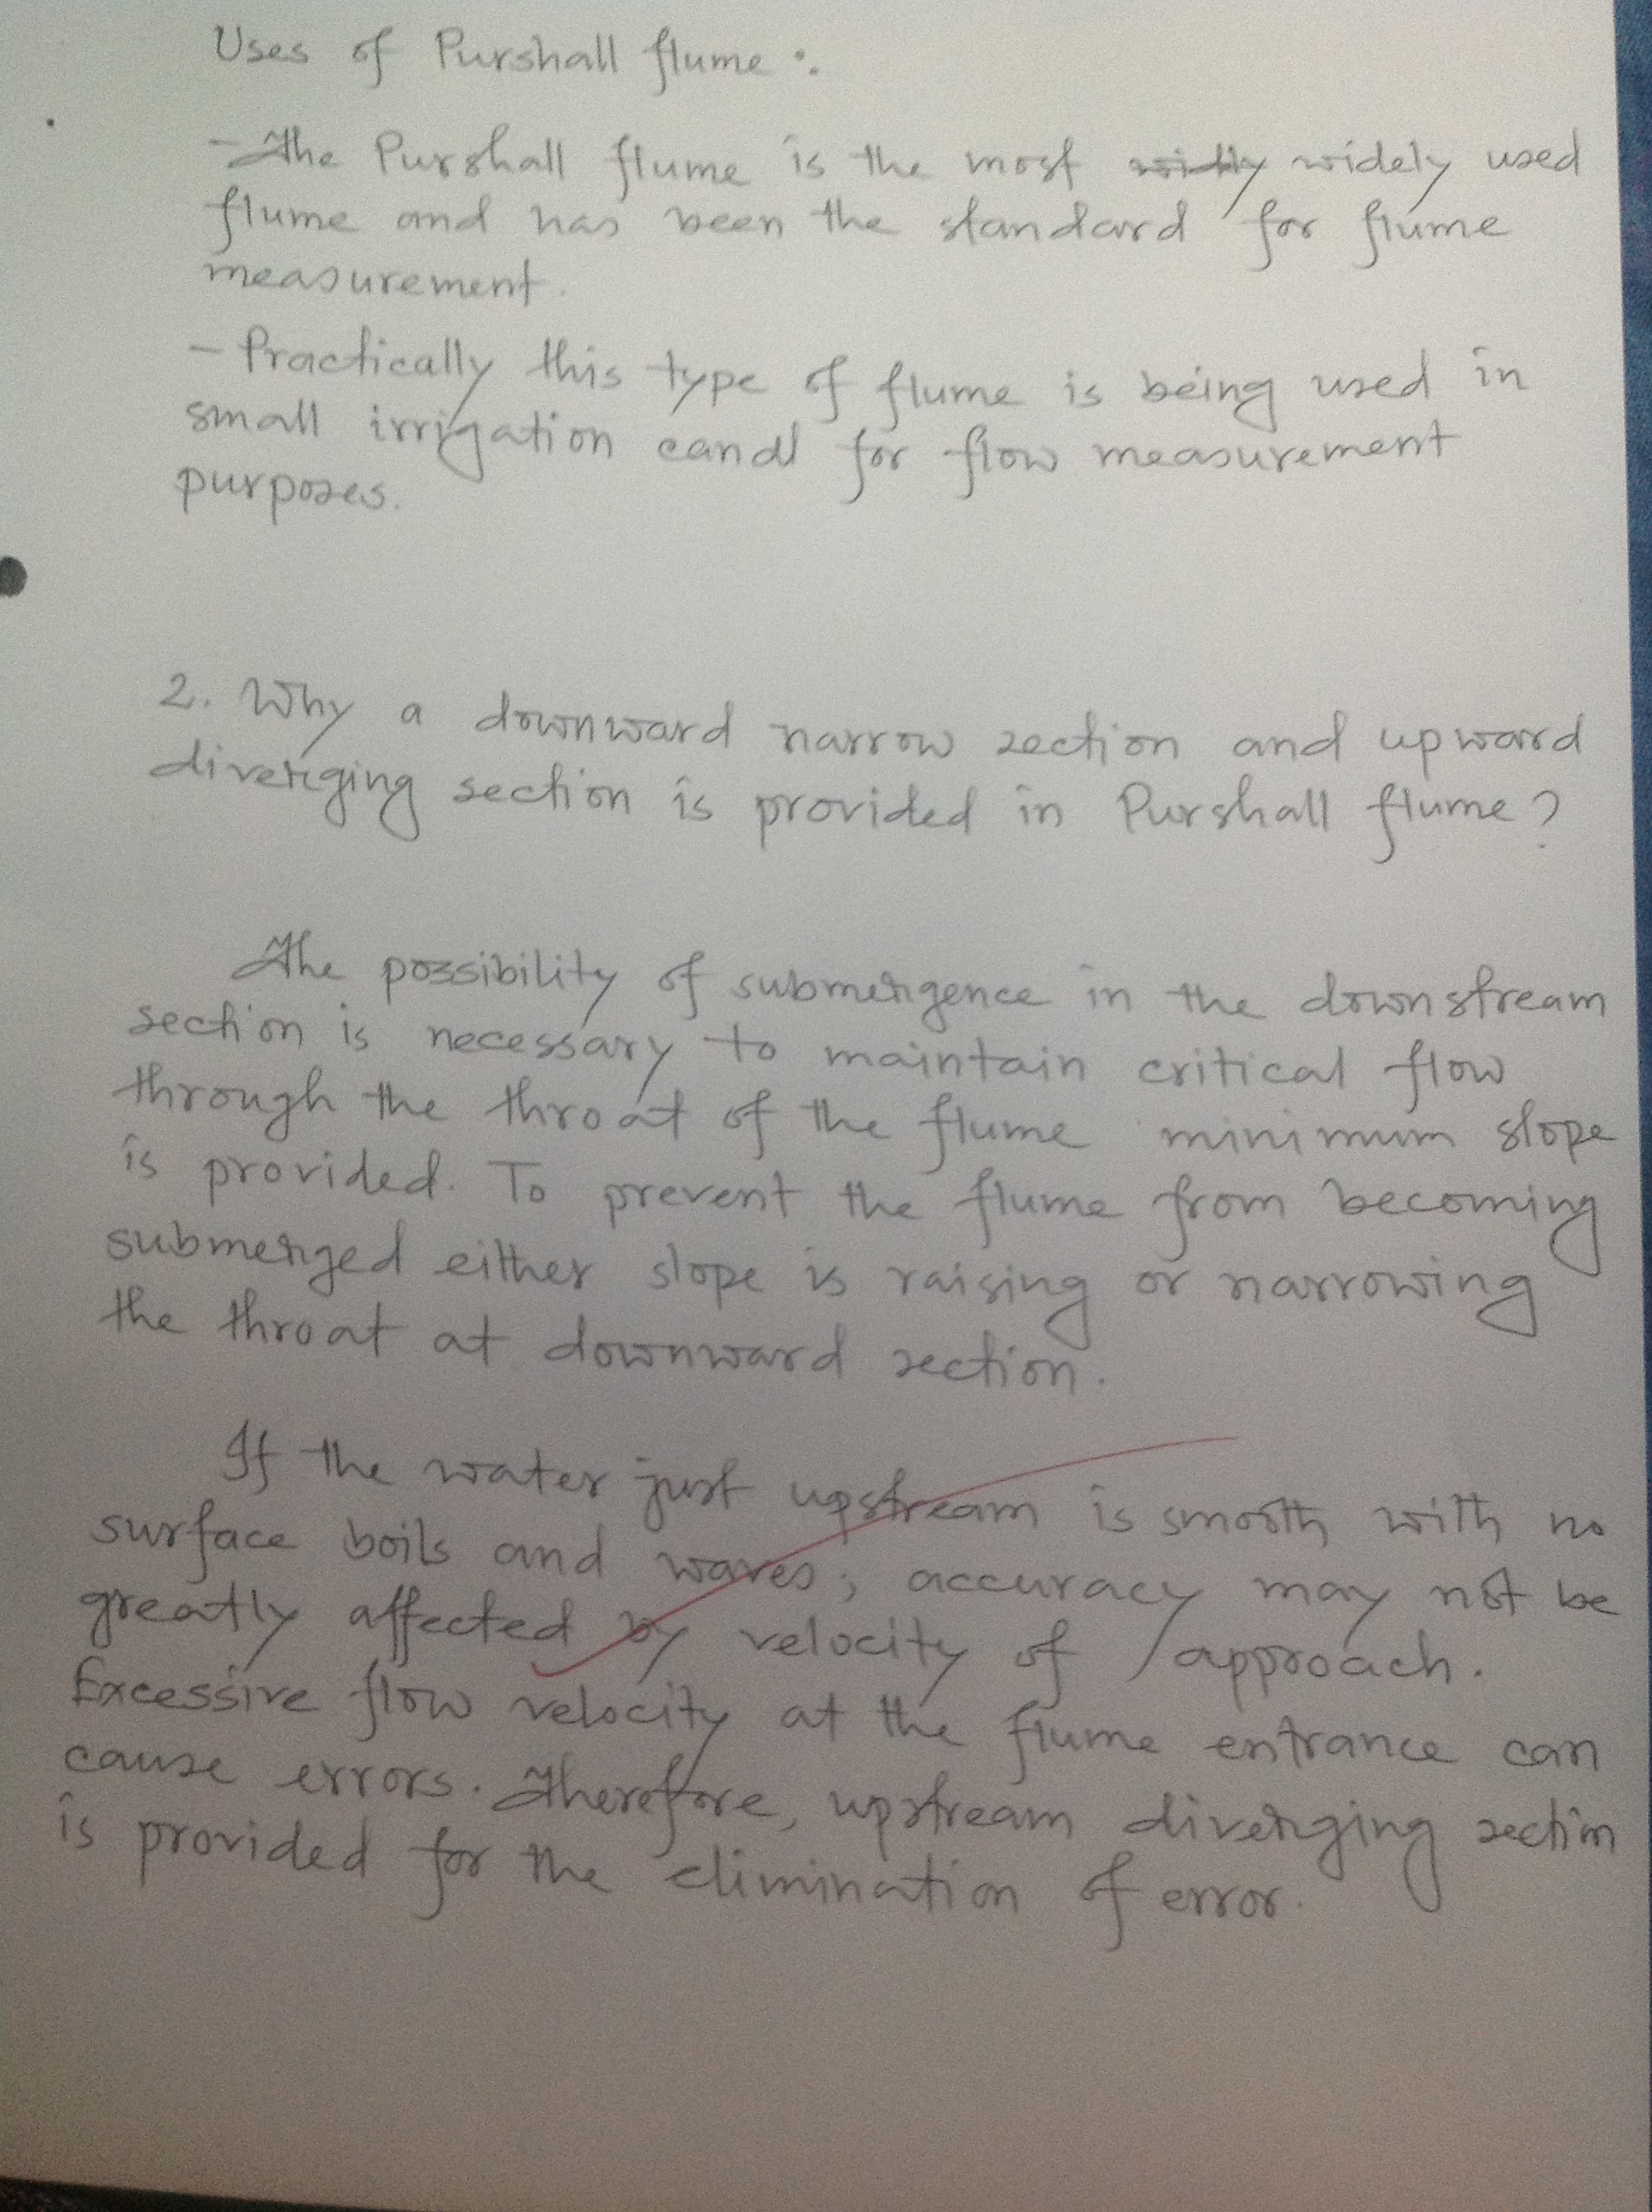 Uses of Purshall flume :.
- The Purshall flume is the most widly widely used
flume and has been the standard for flume
measurement.
- Practically this type of flume is being used in
small irrigation candl for flow measurement
purposes.
2. Why a downward narrow section and upward
diverging section is provided in Purshall flume?
The possibility of submergence in the downstream
section is necessary to maintain critical flow
through the throat of the flume minimum slope
is provided. To prevent the flume from becoming
submerged either slope is raising or narrowing
the throat at downward section.
If the water just upstream is smooth with no
surface boils and waves; accuracy may not be
greatly affected by velocity of approach.
Excessive flow velocity at the flume entrance can
cause errors. Therefore, upstream diverging section
is provided for the elimination of error.